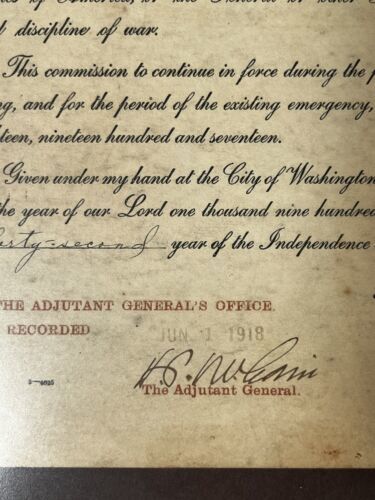 of America, or the General or other
discipline of war.
This commission to continue in force during the
and for the period of the existing emergency,
teen, nineteen hundred and seventeen.
Given under my hand at the City of Washington
the year of our Lord one thousand nine hundred
forty-second year of the Independence
THE ADJUTANT GENERAL'S OFFICE.
RECORDED JUN 1 1918
H.P. McCain
3-4625
The Adjutant General.